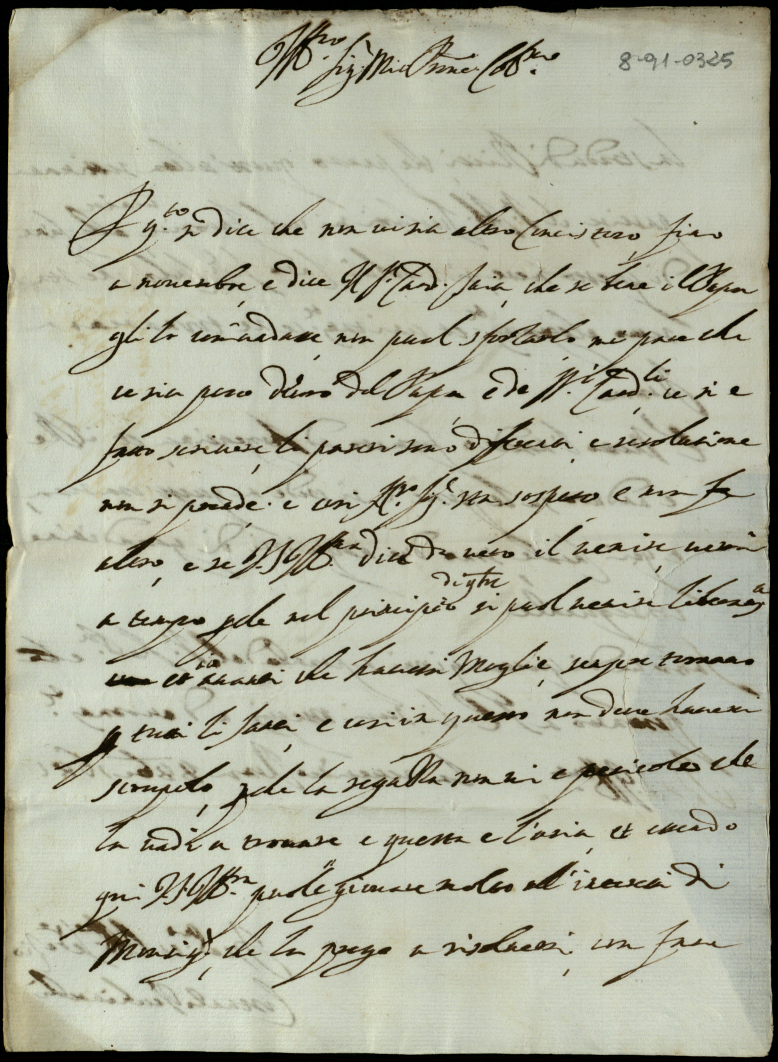 Ill.mo
Sig.r Mio P.rone Col.mo
8-91-0325
si dice che non vi sia altro Concistoro fino
a novembre, e dice Il S.r Card. che se bene il Papa
gli lo comãdasse, non puol sforzarlo, mi pare che
ce sia poco del Papa, e de SS.ri Card.li ce si e
fatto scrivere li pareri sono differenti, e resolutione
non si prende. e cosi Ill.mo Sig.r sta sospeso, e non fa
altro, e se V.S. Ill.ma dice da vero il venire verria
a tempo, p che nel principio di 9bre si puol venire
et che havessi Moglie, sempre tornano
p tutti li Santi, e cosi in questo non deve havere
scrupolo, p che la segulla non vi e pericolo che
la vadi a trovare e questa e l'aria, et essendo
qui V.S. Ill.ma puole giovare molto all'interessi di
Monsig.r, che la prego a risolversi, con fare